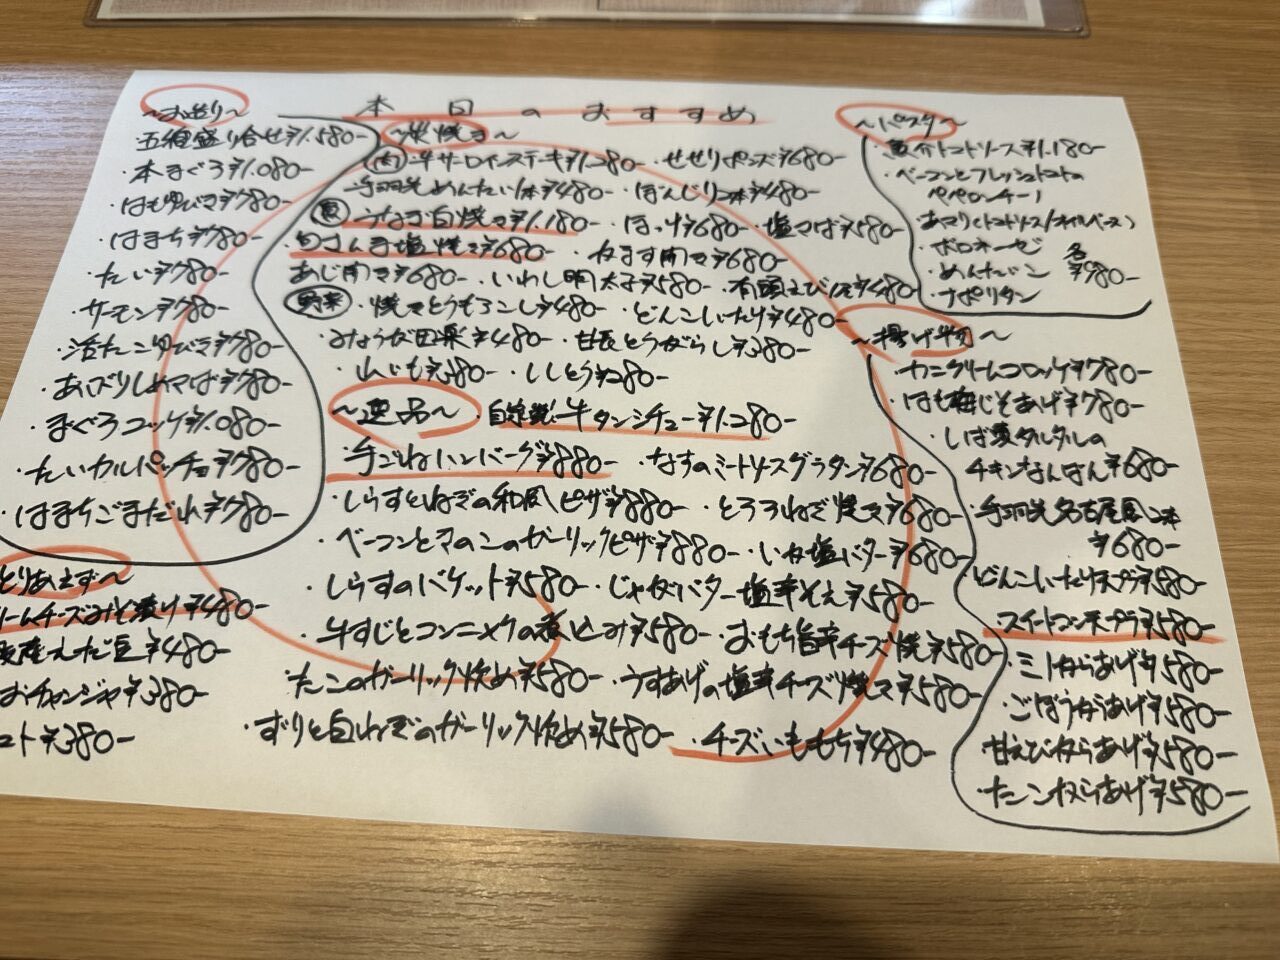 本日のおすすめ
～お造り～
・五種盛り合せ¥1.580-
・本まぐろ¥1.080-
・はもゆびき¥780-
・はまち¥780-
・たい¥780-
・サーモン¥780-
・活たこゆびき¥780-
・あぶりしめさば¥780-
・まぐろユッケ¥1.080-
・たいカルパッチョ¥780-
・はまちごまだれ¥780-
とりあえず～
ームチーズみそ漬け¥480-
えだ豆¥480-
おチャンジャ¥380-
ト¥380-
～炭焼き～
肉 ・牛サーロインステーキ¥1.280- ・せせりポンズ¥680-
・手羽先めんたい1本¥480- ・ぼんじり2本¥480-
魚 ・うなぎ白焼き¥1.180- ・ほっけ¥680- ・塩さば¥580-
・旬さんま塩焼き¥680- ・かます開き¥680-
・あじ開き¥680- ・いわし明太子¥580- ・有頭えび1尾¥480-
野菜 ・焼きとうもろこし¥480- ・どんこしいたけ¥480-
・みょうが田楽¥480- ・甘長とうがらし¥380-
・ししとう¥280-
～逸品～ ・自家製牛タンシチュー¥1.280-
・手ごねハンバーグ¥880- ・なすのミートソースグラタン¥680-
・しらすとねぎの和風ピザ¥880- ・とろろねぎ焼き¥680-
・ベーコンときのこのガーリックピザ¥880- ・いか塩バター¥680-
・しらすのバケット¥580- ・じゃがバター塩辛そえ¥580-
・牛すじとコンニャクの煮込み¥580- ・おもち旨辛チーズ焼¥580-
・たこのガーリック炒め¥580- ・うすあげの塩辛チーズ焼き¥580-
・ずりと白ねぎのガーリック炒め¥580- ・チーズいももち¥480-
～パスタ～
・魚介トマトソース¥1.180-
・ベーコンとフレッシュトマトの
ペペロンチーノ
・あさり(トマトソース/オイルベース)
・ボロネーゼ
・めんたいこ
・ナポリタン
各¥980-
～揚げ物～
・カニクリームコロッケ¥780-
・はも梅じそあげ¥780-
・しば漬タルタルの
チキンなんばん¥680-
・手羽先名古屋風2本
¥680-
・どんこしいたけ天プラ¥580-
・スイートコーン天プラ¥580-
・ミノからあげ¥580-
・ごぼうからあげ¥580-
・甘えびからあげ¥580-
・たこからあげ¥580-